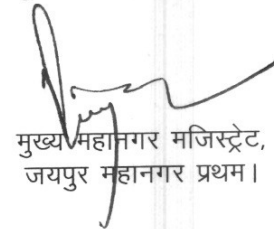 मुख्य महानगर मजिस्ट्रेट,
जयपुर महानगर प्रथम।